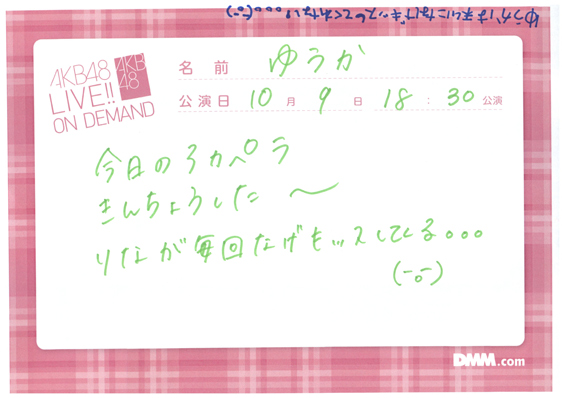 ゆうかは になげキッスしてくれない。。。(-o-)
AKB48
LIVE!!
ON DEMAND
AKB
48
名前 ゆうか
公演日 10月9日 18:30公演
今日のアカペラ
きんちょうした〜
りなが毎回なげキッスしてくる。。。
(-o-)
DMM.com